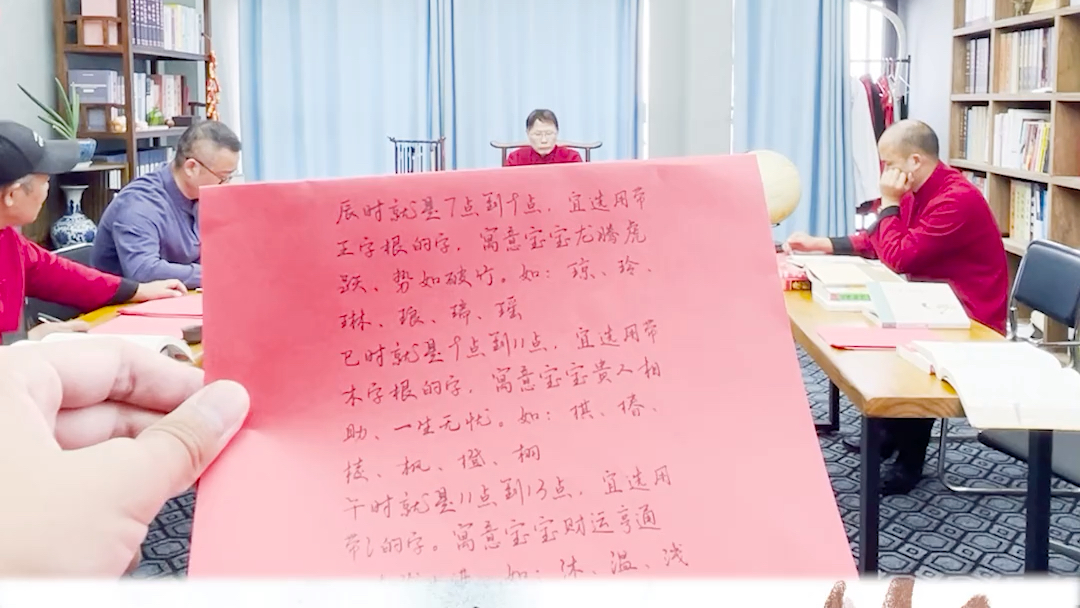 辰时就是7点到9点，宜选用带
王字根的字，寓意宝宝龙腾虎
跃、势如破竹。如：琼、玲、
琳、琅、琦、瑶
巳时就是9点到11点，宜选用带
木字根的字，寓意宝宝贵人相
助、一生无忧。如：棋、椿、
桂、枫、橙、栩
午时就是11点到13点，宜选用
带氵的字。寓意宝宝财运亨通
如：沐、温、浅